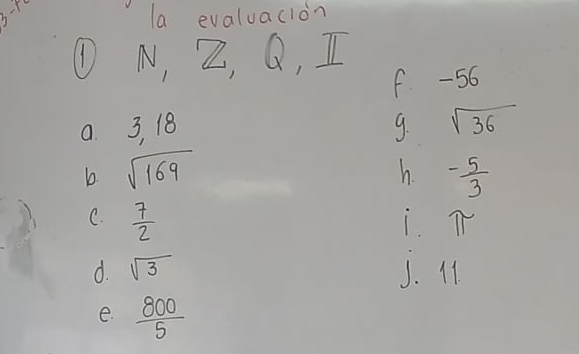 la evaluación
① ℕ, ℤ, ℚ, 𝕀
a. 3,18
b. √169
c. 7/2
d. √3
e. 800/5
f. -56
g. √36
h. -5/3
i. π
j. 11